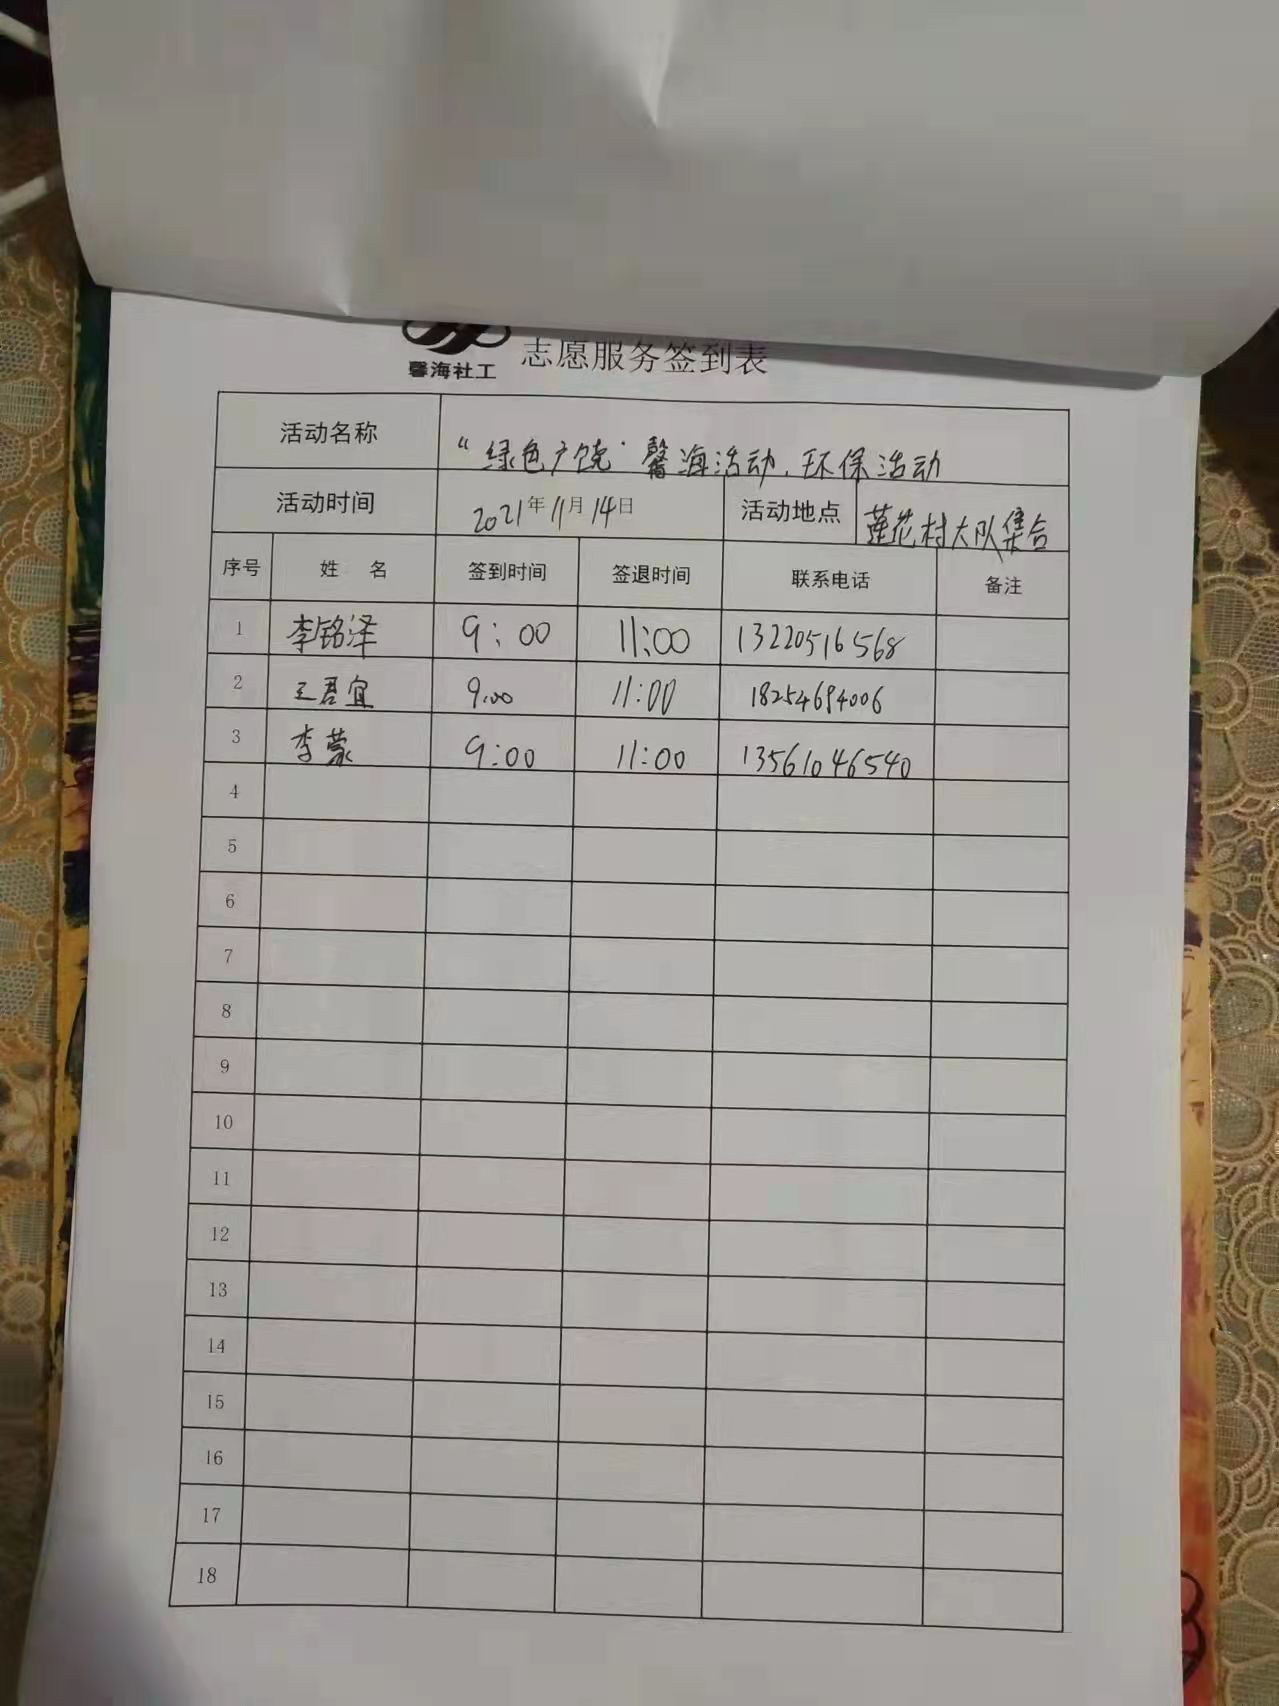 馨海社工 志愿服务签到表
活动名称 “绿色广饶”馨海活动、环保活动
活动时间 2021年11月14日 活动地点 莲花村大队集合
序号 姓 名 签到时间 签退时间 联系电话 备注
1 李铭泽 9:00 11:00 13220516568
2 王君宜 9:00 11:00 18254694006
3 李蒙 9:00 11:00 13561046540
4
5
6
7
8
9
10
11
12
13
14
15
16
17
18